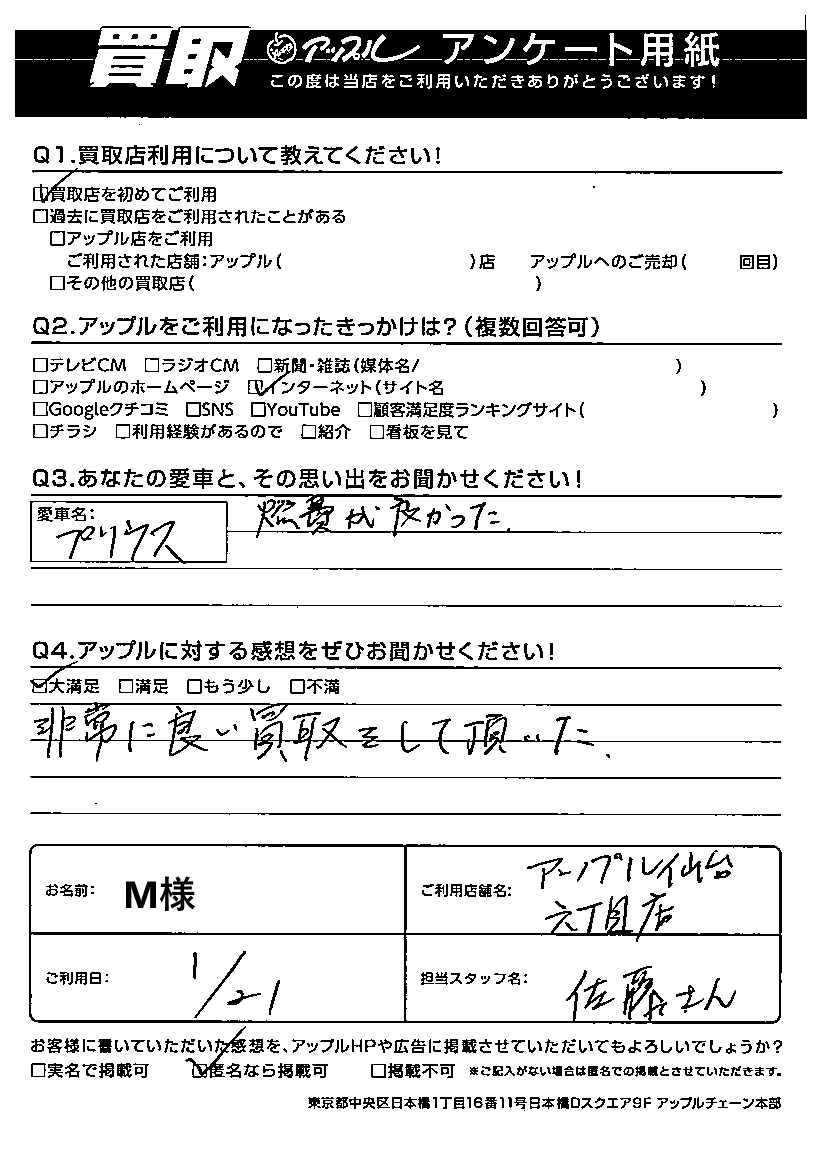 買取 アップル アンケート用紙
この度は当店をご利用いただきありがとうございます!
Q1.買取店利用について教えてください!
☑買取店を初めてご利用
□過去に買取店をご利用されたことがある
□アップル店をご利用
ご利用された店舗:アップル( )店 アップルへのご売却( 回目)
□その他の買取店( )
Q2.アップルをご利用になったきっかけは?(複数回答可)
□テレビCM □ラジオCM □新聞・雑誌(媒体名/ )
□アップルのホームページ ☑インターネット(サイト名 )
□Googleクチコミ □SNS □YouTube □顧客満足度ランキングサイト( )
□チラシ □利用経験があるので □紹介 □看板を見て
Q3.あなたの愛車と、その思い出をお聞かせください!
愛車名: プリウス 燃費が良かった.
Q4.アップルに対する感想をぜひお聞かせください!
☑大満足 □満足 □もう少し □不満
非常に良い買取をして頂いた.
お名前: M様 ご利用店舗名: アップル仙台
六丁目店
ご利用日: 1/21 担当スタッフ名: 佐藤さん
お客様に書いていただいた感想を、アップルHPや広告に掲載させていただいてもよろしいでしょうか?
□実名で掲載可 ☑匿名なら掲載可 □掲載不可 ※ご記入がない場合は匿名での掲載とさせていただきます。
東京都中央区日本橋1丁目16番11号日本橋Dスクエア9F アップルチェーン本部